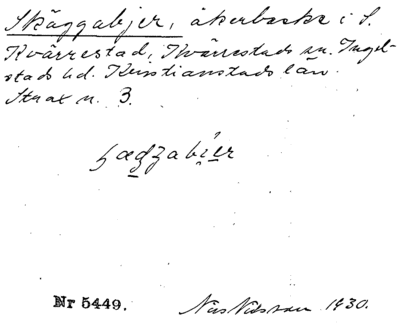 Skäggabjer, åkerbacke i S.
Kvärrestad, Kvärrestads sn. Ingel-
stads hd. Kristianstads län.
Strax n. 3.
Nr 5449. Nils Nilsson 1930.